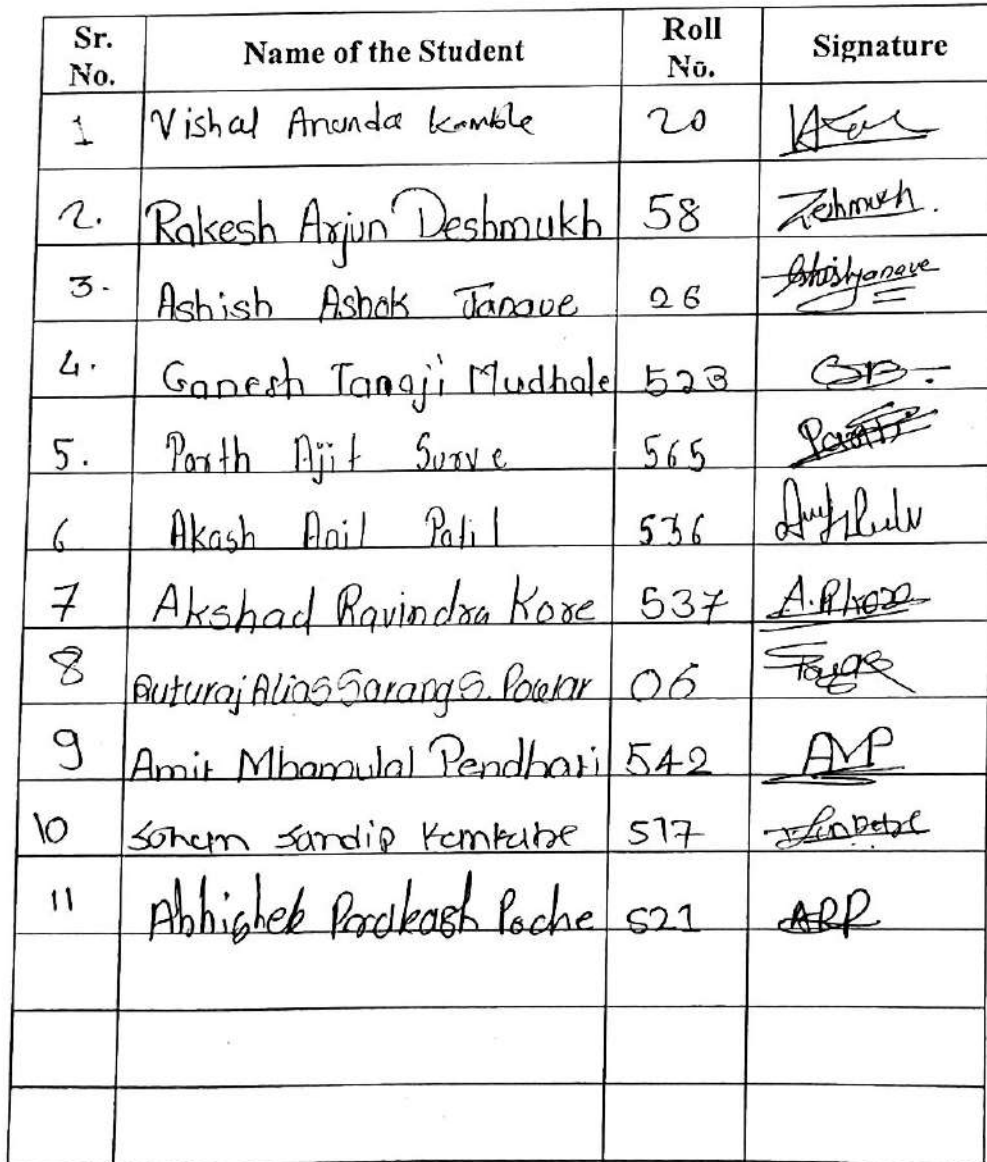 Sr. No. Name of the Student Roll No. Signature
1 Vishal Ananda Kamble 20
2. Rakesh Arjun Deshmukh 58
3. Ashish Ashok Janave 26
4. Ganesh Tanaji Mudhale 523
5. Parth Ajit Surve 565
6 Akash Anil Patil 536
7 Akshad Ravindra Kore 537 A.R.Kore
8 Ruturaj Alias Sarang S. Powar 06
9 Amit Mhamulal Pendhari 542 AMP
10 Soham Sandip 517
11 Abhishek Prakash Poche 521 ARP